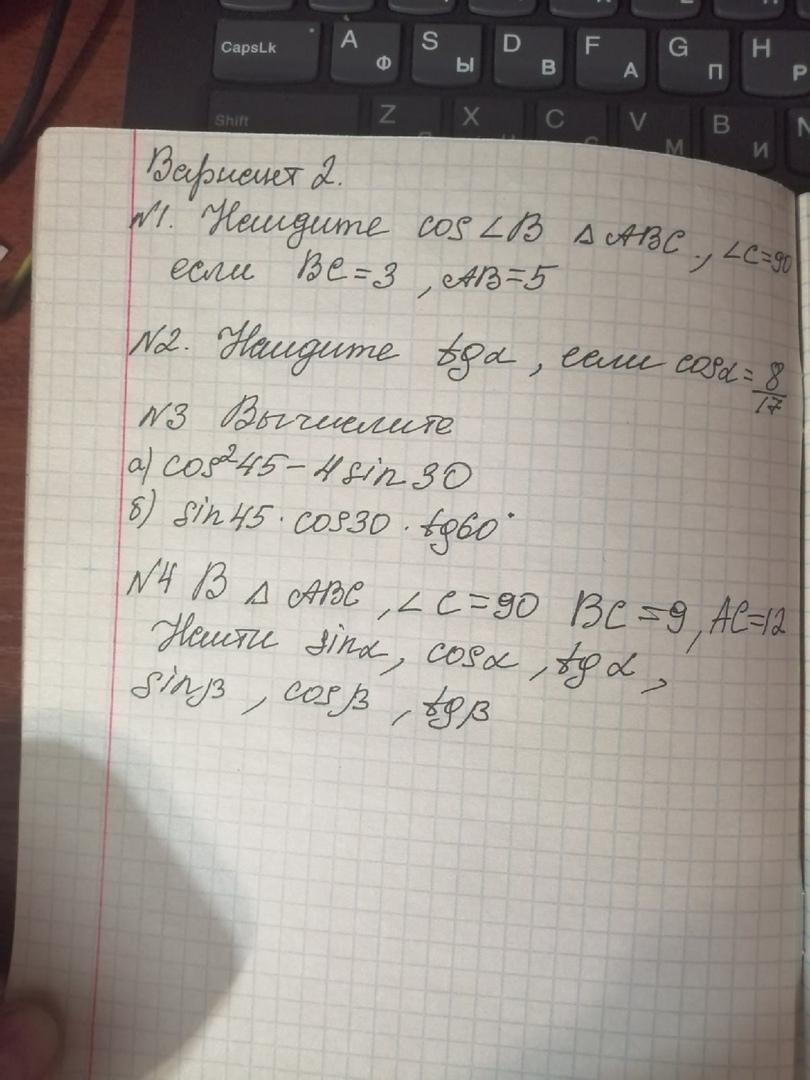 CapsLk
A
Ф
S
Ы
D
В
F
А
G
П
H
Р
Shift
Z
X
C
V
М
B
И
N
Вариант 2.
№1. Найдите cos ∠B △ ABC, ∠C=90
если BC=3, AB=5
№2. Найдите tgα, если cosα= 8/17
№3 Вычислите
а) cos²45 - 4 sin 30
б) sin 45 · cos30 · tg60°
№4 В △ ABC, ∠C=90 BC=9, AC=12
Найти sinα, cosα, tgα,
sinβ, cosβ, tgβ